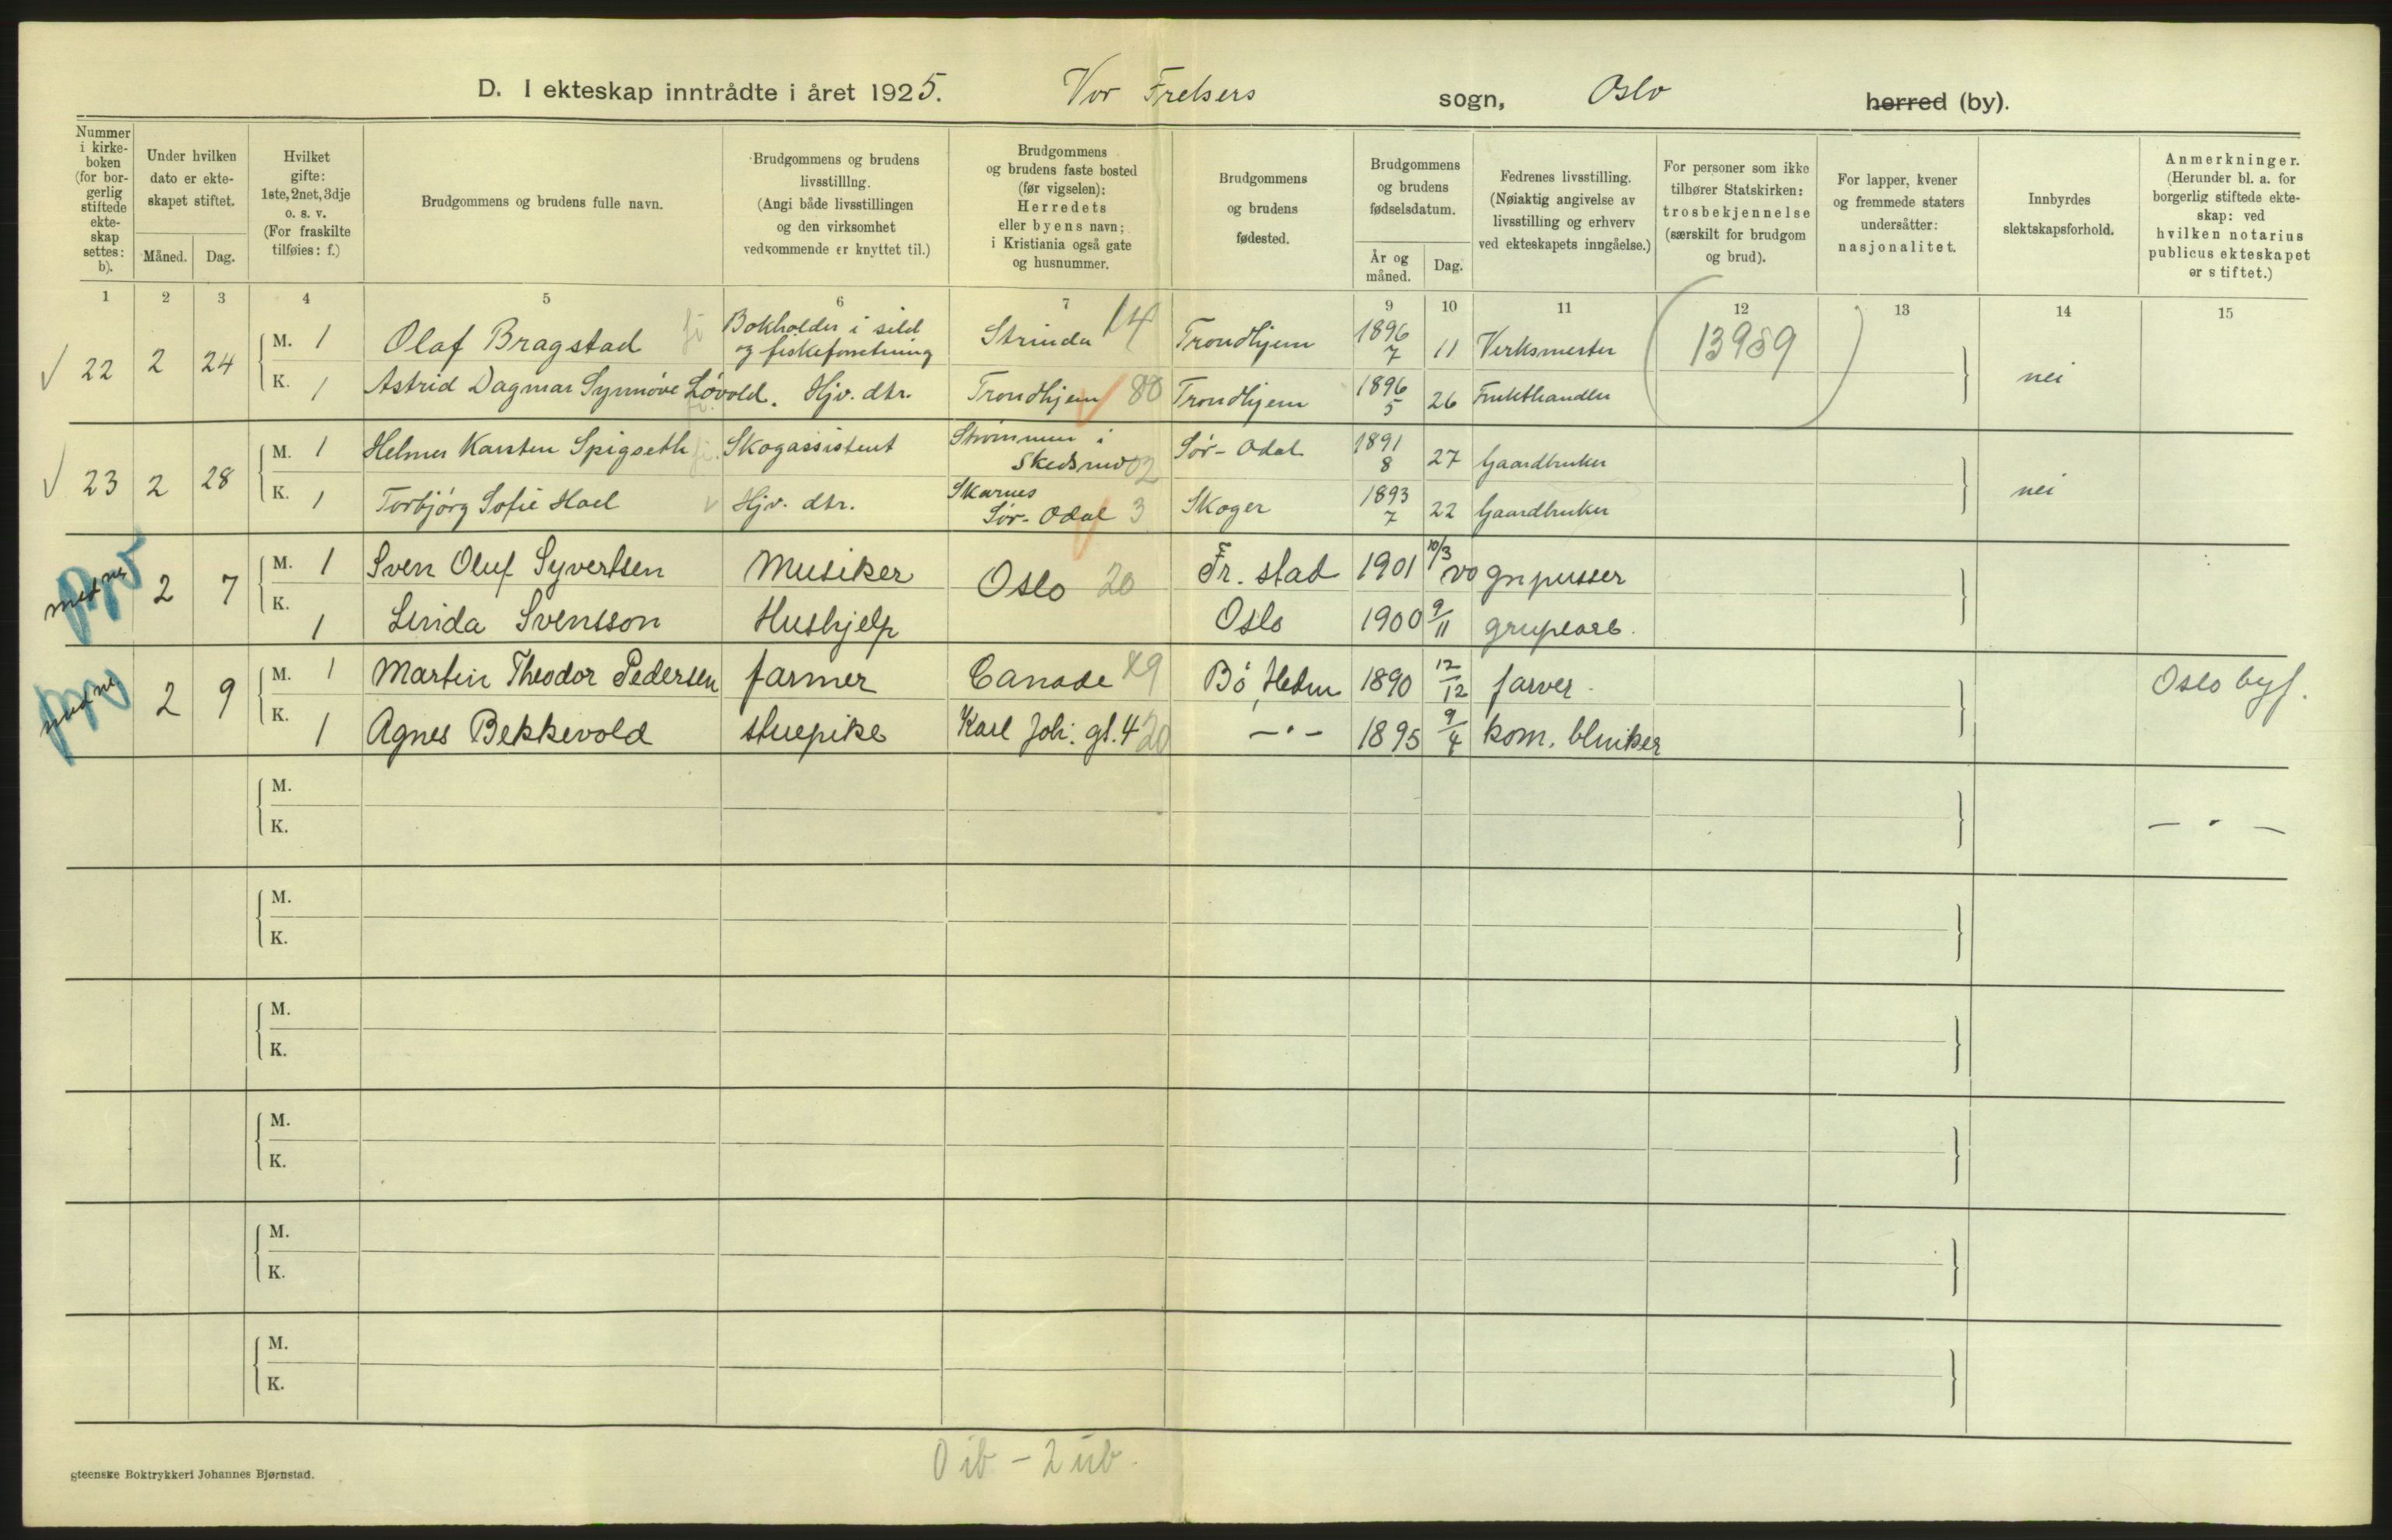 D. I ekteskap inntrådte i året 1925. Vor Frelsers sogn, Oslo herred (by).
Nummer i kirke- boken (for bor- gerlig stiftede ekte- skap settes: b).
Under hvilken dato er ekte- skapet stiftet.
Måned. Dag.
Hvilket gifte: 1ste, 2net, 3dje o. s. v. (For fraskilte tilføies: f.)
Brudgommens og brudens fulle navn.
Brudgommens og brudens livsstillling. (Angi både livsstillingen og den virksomhet vedkommende er knyttet til.)
Brudgommens og brudens faste bosted (før vigselen): Herredets eller byens navn; i Kristiania også gate og husnummer.
Brudgommens og brudens fødested.
Brudgommens og brudens fødselsdatum.
År og måned. Dag.
Fedrenes livsstilling. (Nøiaktig angivelse av livsstilling og erhverv ved ekteskapets inngåelse.)
For personer som ikke tilhører Statskirken: trosbekjennelse (særskilt for brudgom og brud).
For lapper, kvener og fremmede staters undersåtter: nasjonalitet.
Innbyrdes slektskapsforhold.
Anmerkninger. (Herunder bl. a. for borgerlig stiftede ekte- skap: ved hvilken notarius publicus ekteskapet er stiftet.)
1 2 3 4 5 6 7 8 9 10 11 12 13 14 15
22 2 24 M. 1 Olaf Bragstad Bokholder i sild og fiskeforretning Strinda 14 Trondhjem 1896 7 11 Verksmester (13959) nei
K. 1 Astrid Dagmar Synnøve Løvold. Hjv. dtr. Trondhjem 80 Trondhjem 1896 5 26 Frukthandler
23 2 28 M. 1 Helmer Karsten Spigseth Skogassistent Strømmen i Skedsmo 02 Sør-Odal 1891 8 27 Gaardbruker nei
K. 1 Torbjørg Sofie Hael Hjv. dtr. Skarnes Sør-Odal 3 Skoger 1893 7 22 Gaardbruker
2 7 M. 1 Sven Oluf Syvertsen Musiker Oslo 20 Fr. stad 1901 10/3 vognpusser
K. 1 Linda Svensson Hushjelp Oslo 1900 9/11 grupearb.
2 9 M. 1 Martin Theodor Pedersen farmer Canade 89 Bö, Hedm 1890 12/12 farver. Oslo byf.
K. 1 Agnes Bekkevold stuepike Karl Joh. gt. 4 20 —"— 1895 9/4 kom. blinker
M.
K. —"—
M.
K.
M.
K.
M.
K.
M.
K.
M.
K.
0 ib - 2 ub.
gteenske Boktrykkeri Johannes Bjørnstad.